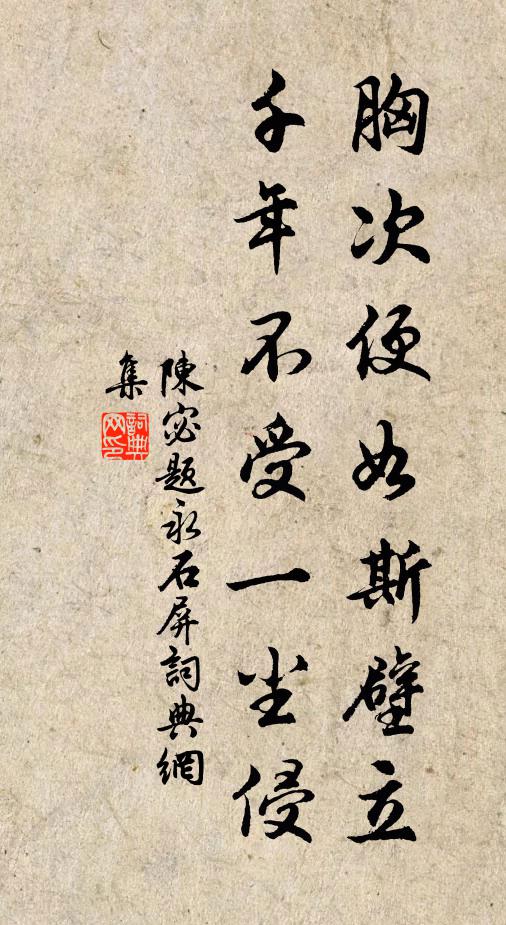 胸次便如斯壁立
千年不受一尘侵
陳宓題永石屏詞典網
集
詞典
网印